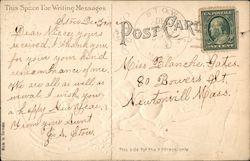 This Space For Writing Messages
POST CARD
Dear Niece yours
received. I thank you
for your kind
remembrance of me.
We are all as well as
usual. I wish you
a happy New Year.
From your Aunt
Stow
Miss Blanche Gates
80 Bowers St.
Newtonville Mass.
This side for the Address only